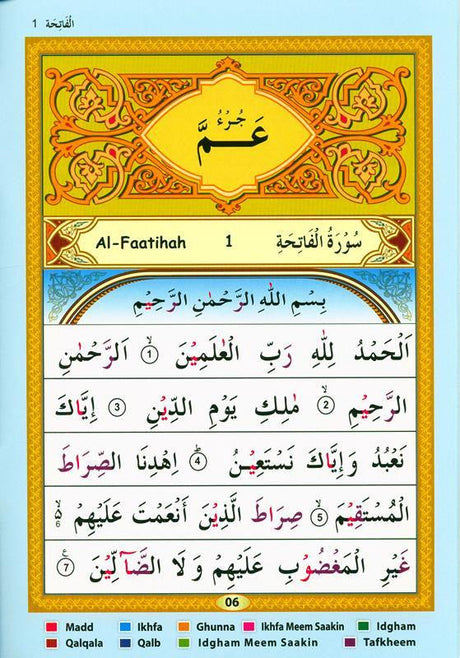 1 اَلْفَاتِحَة
جُزْءُ
عَمَّ
Al-Faatihah 1 سُوْرَةُ الْفَاتِحَةِ
بِسْمِ اللّٰهِ الرَّحْمٰنِ الرَّحِيْمِ
اَلْحَمْدُ لِلّٰهِ رَبِّ الْعٰلَمِيْنَ ۙ ١ اَلرَّحْمٰنِ
الرَّحِيْمِ ۙ ٢ مٰلِكِ يَوْمِ الدِّيْنِ ٣ إِيَّاكَ
نَعْبُدُ وَإِيَّاكَ نَسْتَعِيْنُ ؕ ٤ اِهْدِنَا الصِّرَاطَ
الْمُسْتَقِيْمَ ۙ ٥ صِرَاطَ الَّذِيْنَ أَنْعَمْتَ عَلَيْهِمْ ۙ ٥ ٦
غَيْرِ الْمَغْضُوْبِ عَلَيْهِمْ وَلَا الضَّآلِّيْنَ ع ٧
06
Madd Ikhfa Ghunna Ikhfa Meem Saakin Idgham
Qalqala Qalb Idgham Meem Saakin Tafkheem